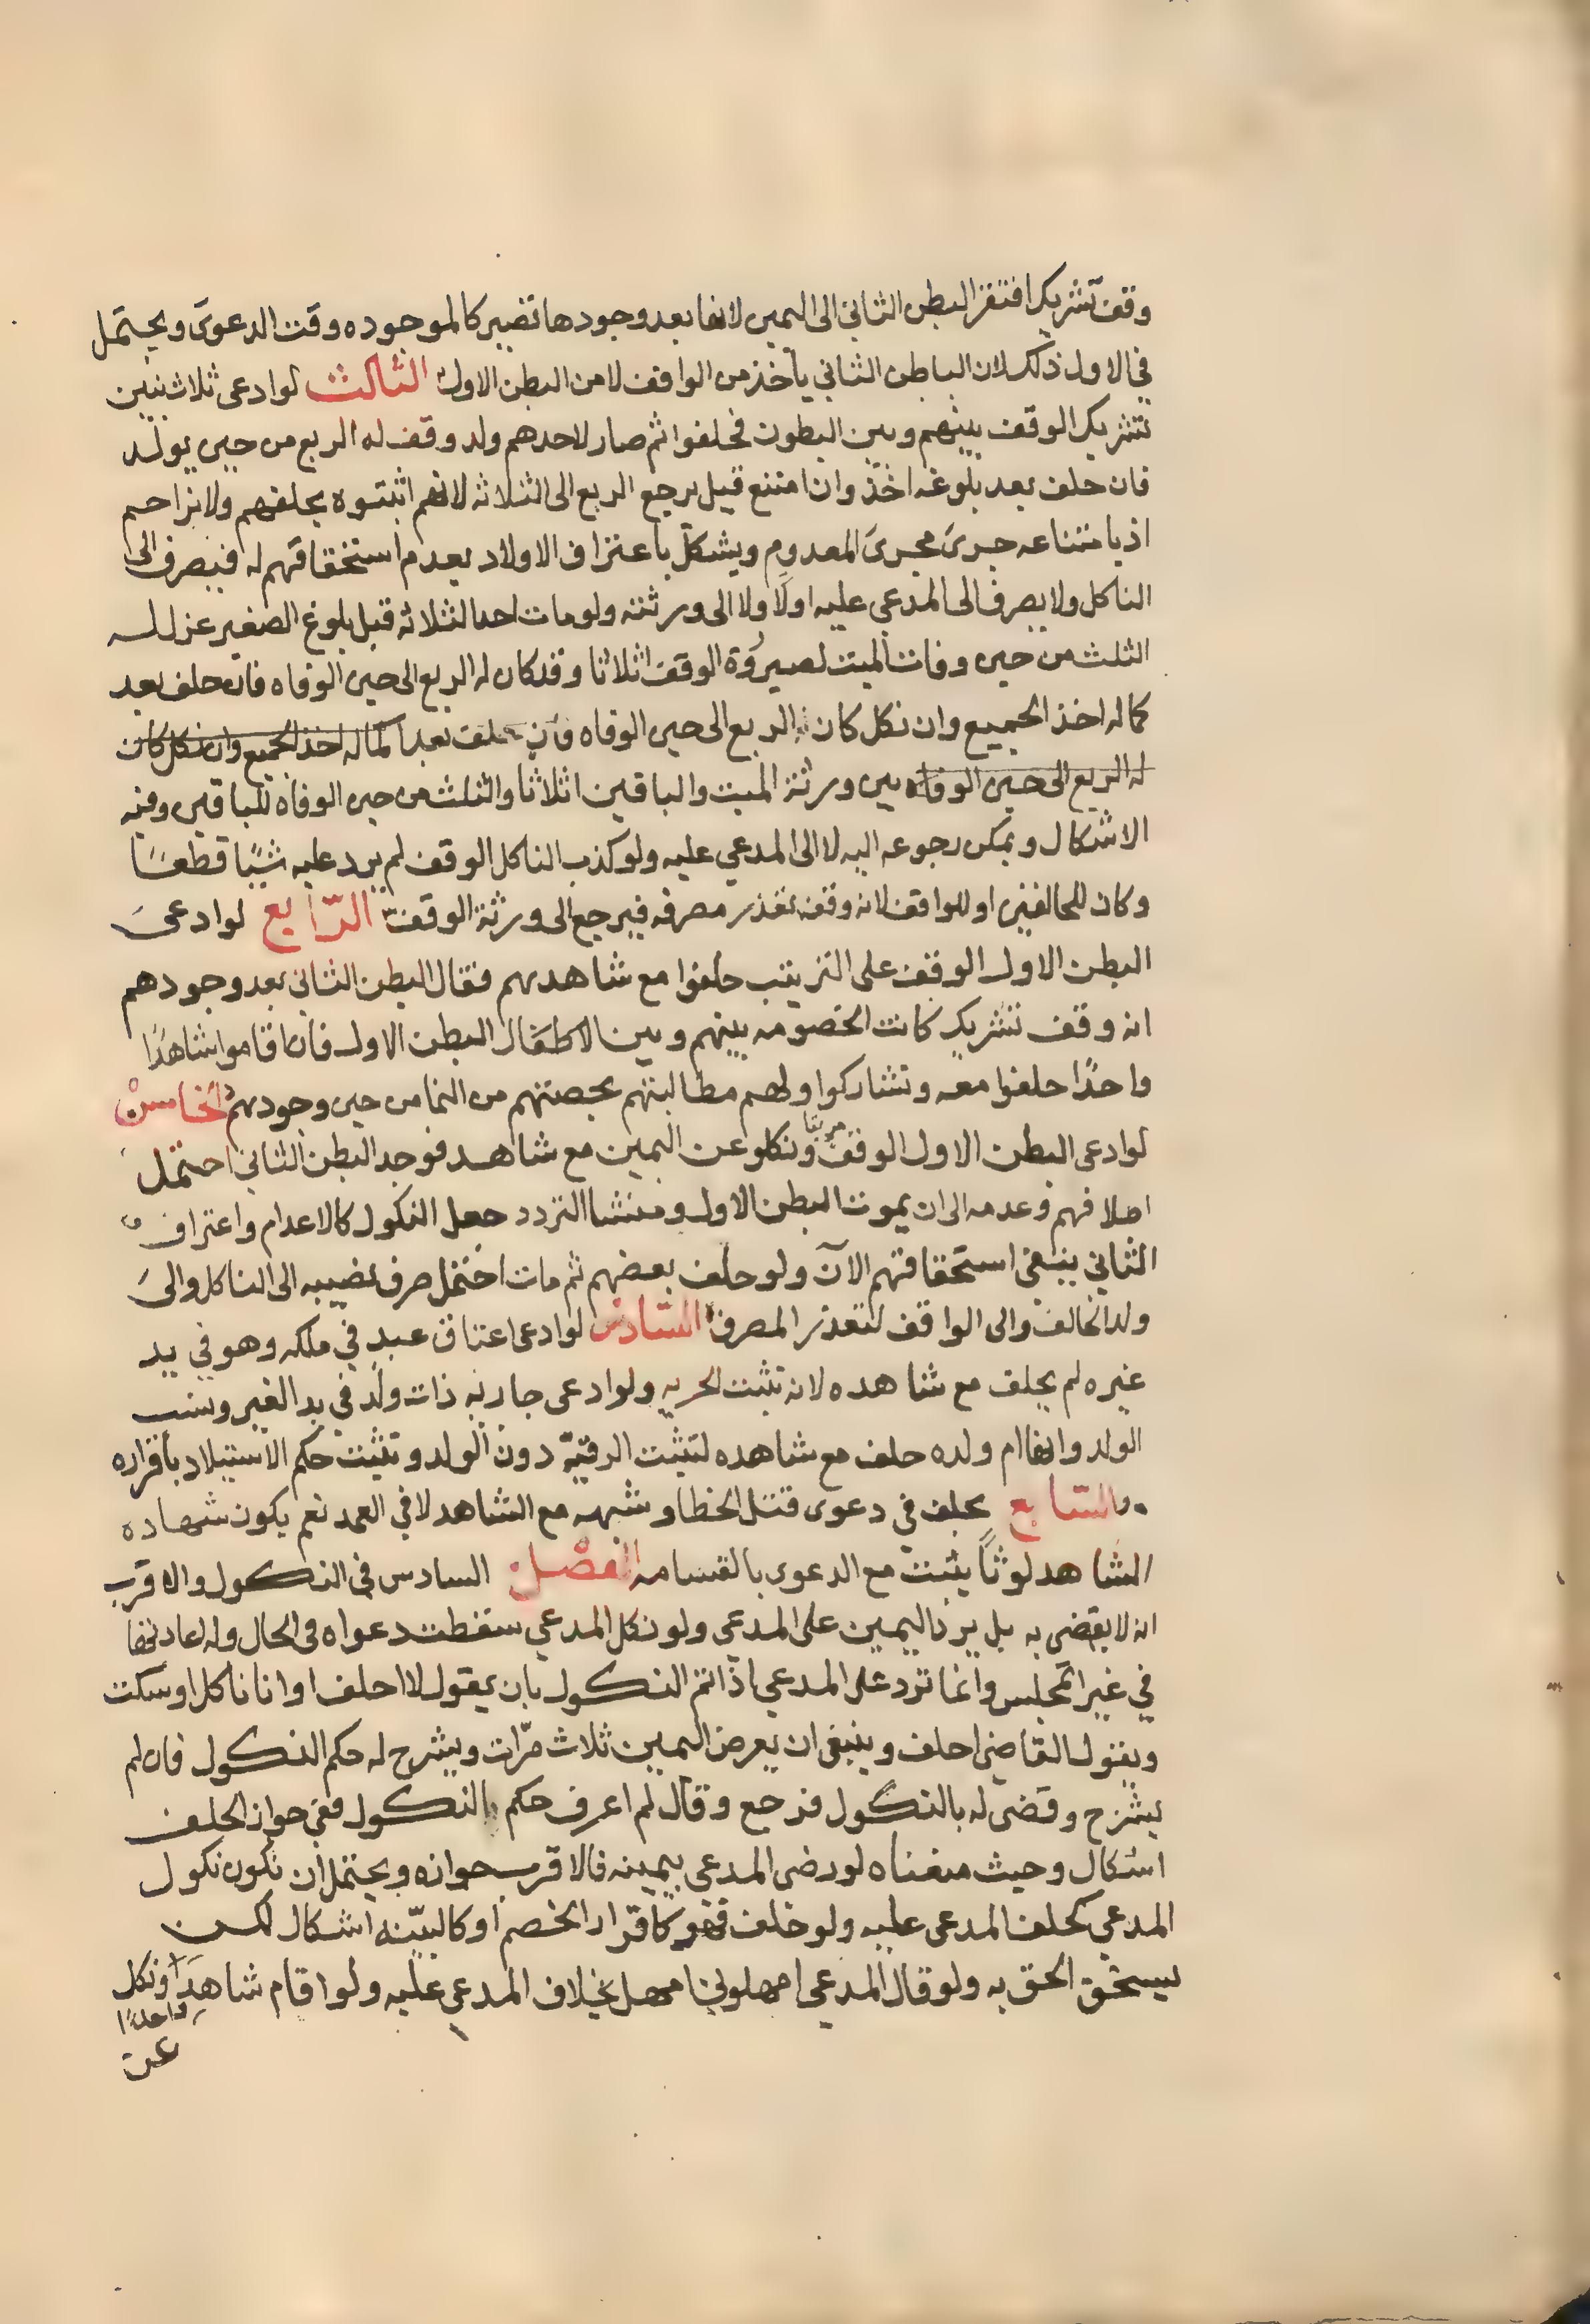 وقف تشريك افتقر البطن الثاني الى اليمين لانها بعد وجودها تصير كالموجوده وقت الدعوى ويحتمل
في الاول ذلك لان الباطن الثاني يأخذ من الواقف لا من البطن الاول الثالث لو ادعى ثلاث بنين
تشريك الوقف بينهم وبين البطون فحلفوا ثم صار لاحدهم ولد وقف له الربع من حين يولد
فان حلف بعد بلوغه اخذ وان امتنع قيل يرجع الربع الى الثلاثه لانهم اثبتوه بحلفهم ولا نزاحم
اذ بامتناعه جرى مجرى المعدوم ويشكل باعتراف الاولاد بعدم استحقاقهم له فيصرف الى
الناكل ولا يصرف الى المدعي عليه اولًا ولا الى ورثته ولو مات احد الثلاثه قبل بلوغ الصغير عزل له
الثلث من حين وفات الميت لصيروُة الوقف اثلاثا وقد كان له الربع الى حين الوفاه فان حلف بعد
كماله اخذ الجميع وان نكل كان الربع الى حين الوفاه فان حلف بعد كماله اخذ الجميع وان نكل كان
له الربع الى حين الوفاه بين ورثة الميت والباقين اثلاثا والثلث من حين الوفاه للباقين وفيه
الاشكال ويمكن رجوعه اليه لا الى المدعي عليه ولو كذب الناكل الوقف لم يرد عليه شيًا قطعًا
وكان للحالفين او للواقف لانه وقف تعذر مصرفه فيرجع الى ورثة الوقف الرّابع لو ادعى
البطن الاول الوقف على الترتيب حلفوا مع شاهدهم فقال البطن الثاني بعد وجودهم
انه وقف تشريك كانت الخصومه بينهم وبين البطن الاول فان اقاموا شاهدًا
واحدًا حلفوا معه وتشاركوا ولهم مطالبتهم بحصتهم من النما من حين وجودهم الخامس
لو ادعى البطن الاول الوقف مرتبًا ونكلو عن اليمين مع شاهد فوجد البطن الثاني احتمل
احلافهم وعدمه الى ان يموت البطن الاول ومنشا التردد جعل النكول كالاعدام واعتراف
الثاني ينبغي استحقاقهم الآن ولو حلف بعضهم ثم مات احتمل صرف نصيبه الى الناكل والى
ولد الحالف والى الواقف لتعذر المصرف السّادس لو ادعى اعتاق عبد في ملكه وهو في يد
غيره لم يحلف مع شاهده لانه تثبت الحريه ولو ادعى جاريه ذات ولد في يد الغير ونسب
الولد وانها ام ولده حلف مع شاهده لتثبت الرقيّة دون الولد وتثبت حكم الاستيلاد باقراره
السّابع يحلف في دعوى قتل الخطا وشبهه مع الشاهد لا في العمد نعم يكون شهاده
الشاهد لوثًا يثبت مع الدعوى بالقسامه الفصل السادس في النكول والاقرب
انه لا يقضى به بل يرد اليمين على المدعي ولو نكل المدعي سقطت دعواه في الحال وله اعادتها
في غير المجلس وانما ترد على المدعي اذا تم النكول بان يقول لا احلف او انا ناكل او سكت
ويقول القاضي احلف وينبغي ان يعرض اليمين ثلاث مرّات ويشرح له حكم النكول فان لم
يشرح وقضى له بالنكول فرجع وقال لم اعرف حكم النكول ففي جواز الحلف
اشكال وحيث منعناه لو رضى المدعي بيمينه فالاقرب جوازه ويحتمل ان نكون نكول
المدعي كحلف المدعى عليه ولو حلف فهو كاقرار الخصم او كالبيّنه اشكال لكن
يستحق الحق به ولو قال المدعي امهلوني امهل بخلاف المدعي عليه ولو اقام شاهدًا ونكل
واحدًا
عن